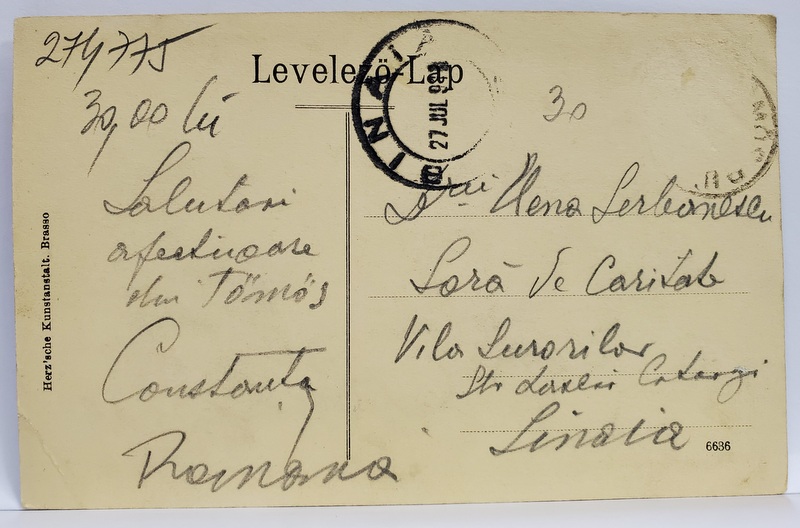 274/775
Levelező-Lap
30,00 lei
30
SINAIA
27 JUL 93
Salutari
afectuoase
din Tömös
Constanța
Romana
Dnei Elena Serbanescu
Soră de Caritate
Vila Surorilor
Str Lascăr Catargi
Sinaia
6636
Herz'sche Kunstanstalt. Brasso